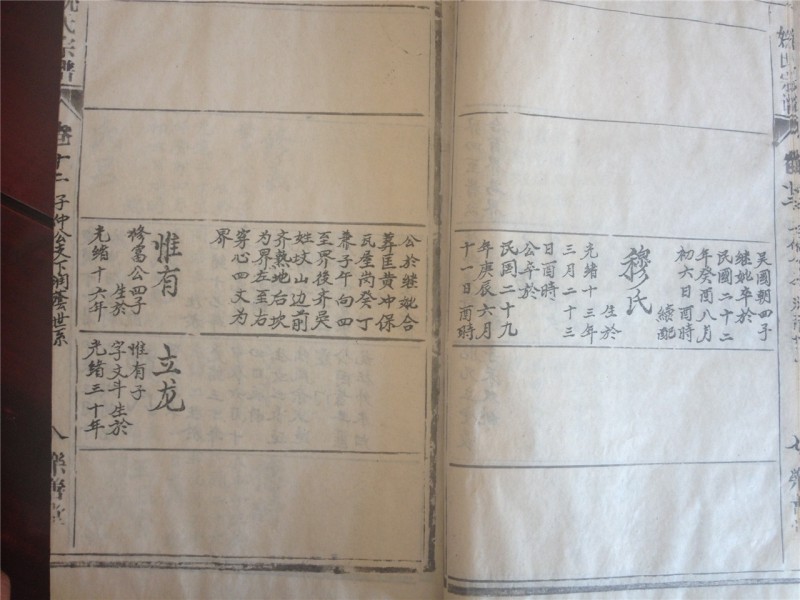 吴國朝四子
继妣卒於
民國二十二
年癸酉八月
初六日酉時
續配
穆氏
生於
光緒十三年
三月二十三
日酉時
公卒於
民囯二十九
年庚辰六月
十一日酉時
公於继妣合
葬匡黄冲保
瓦屋岗癸丁
兼子午向四
至界後齐吴
姓坟山边前
齐熟地后坎
为界左至右
穿心四丈为
界
惟有
修富公四子
生於
光緒十六年
立龙
惟有子
字文斗生於
光緒三十年
氏宗譜
卷十二
子仲公天下润蓥世系
八
樂善堂